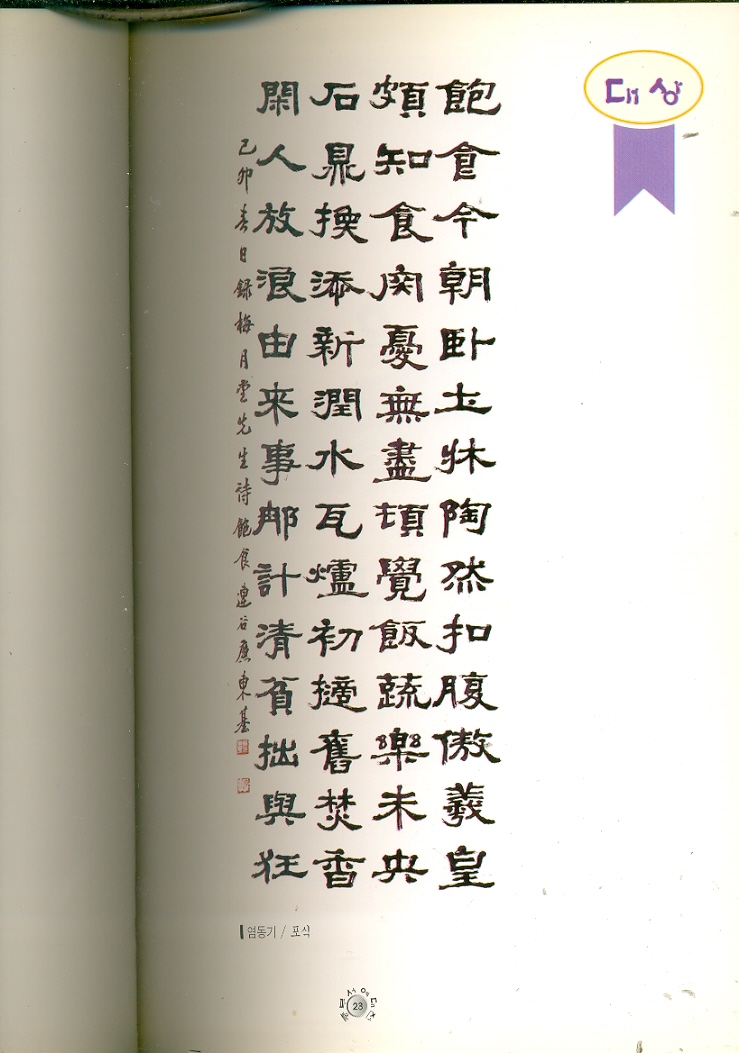 대상
飽食今朝卧土牀陶然扣腹傲羲皇
頗知食肉憂無盡頓覺飯蔬樂未央
石鼎換添新澗水瓦爐初擿舊焚香
閑人放浪由来事那計清貧拙與狂
己卯春日録梅月堂先生詩飽食 蓮谷廉東基
염동기 / 포식
23